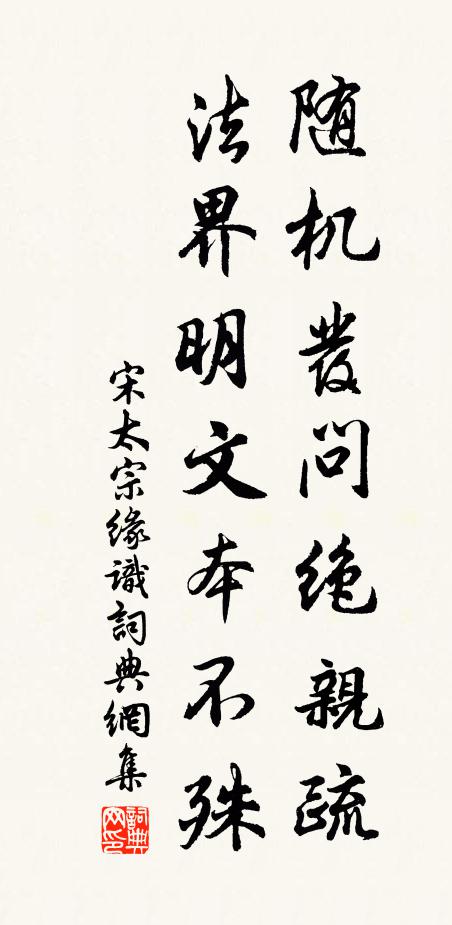 随机發问绝親疏
法界明文本不殊
宋太宗缘識詞典網集
詞典网印